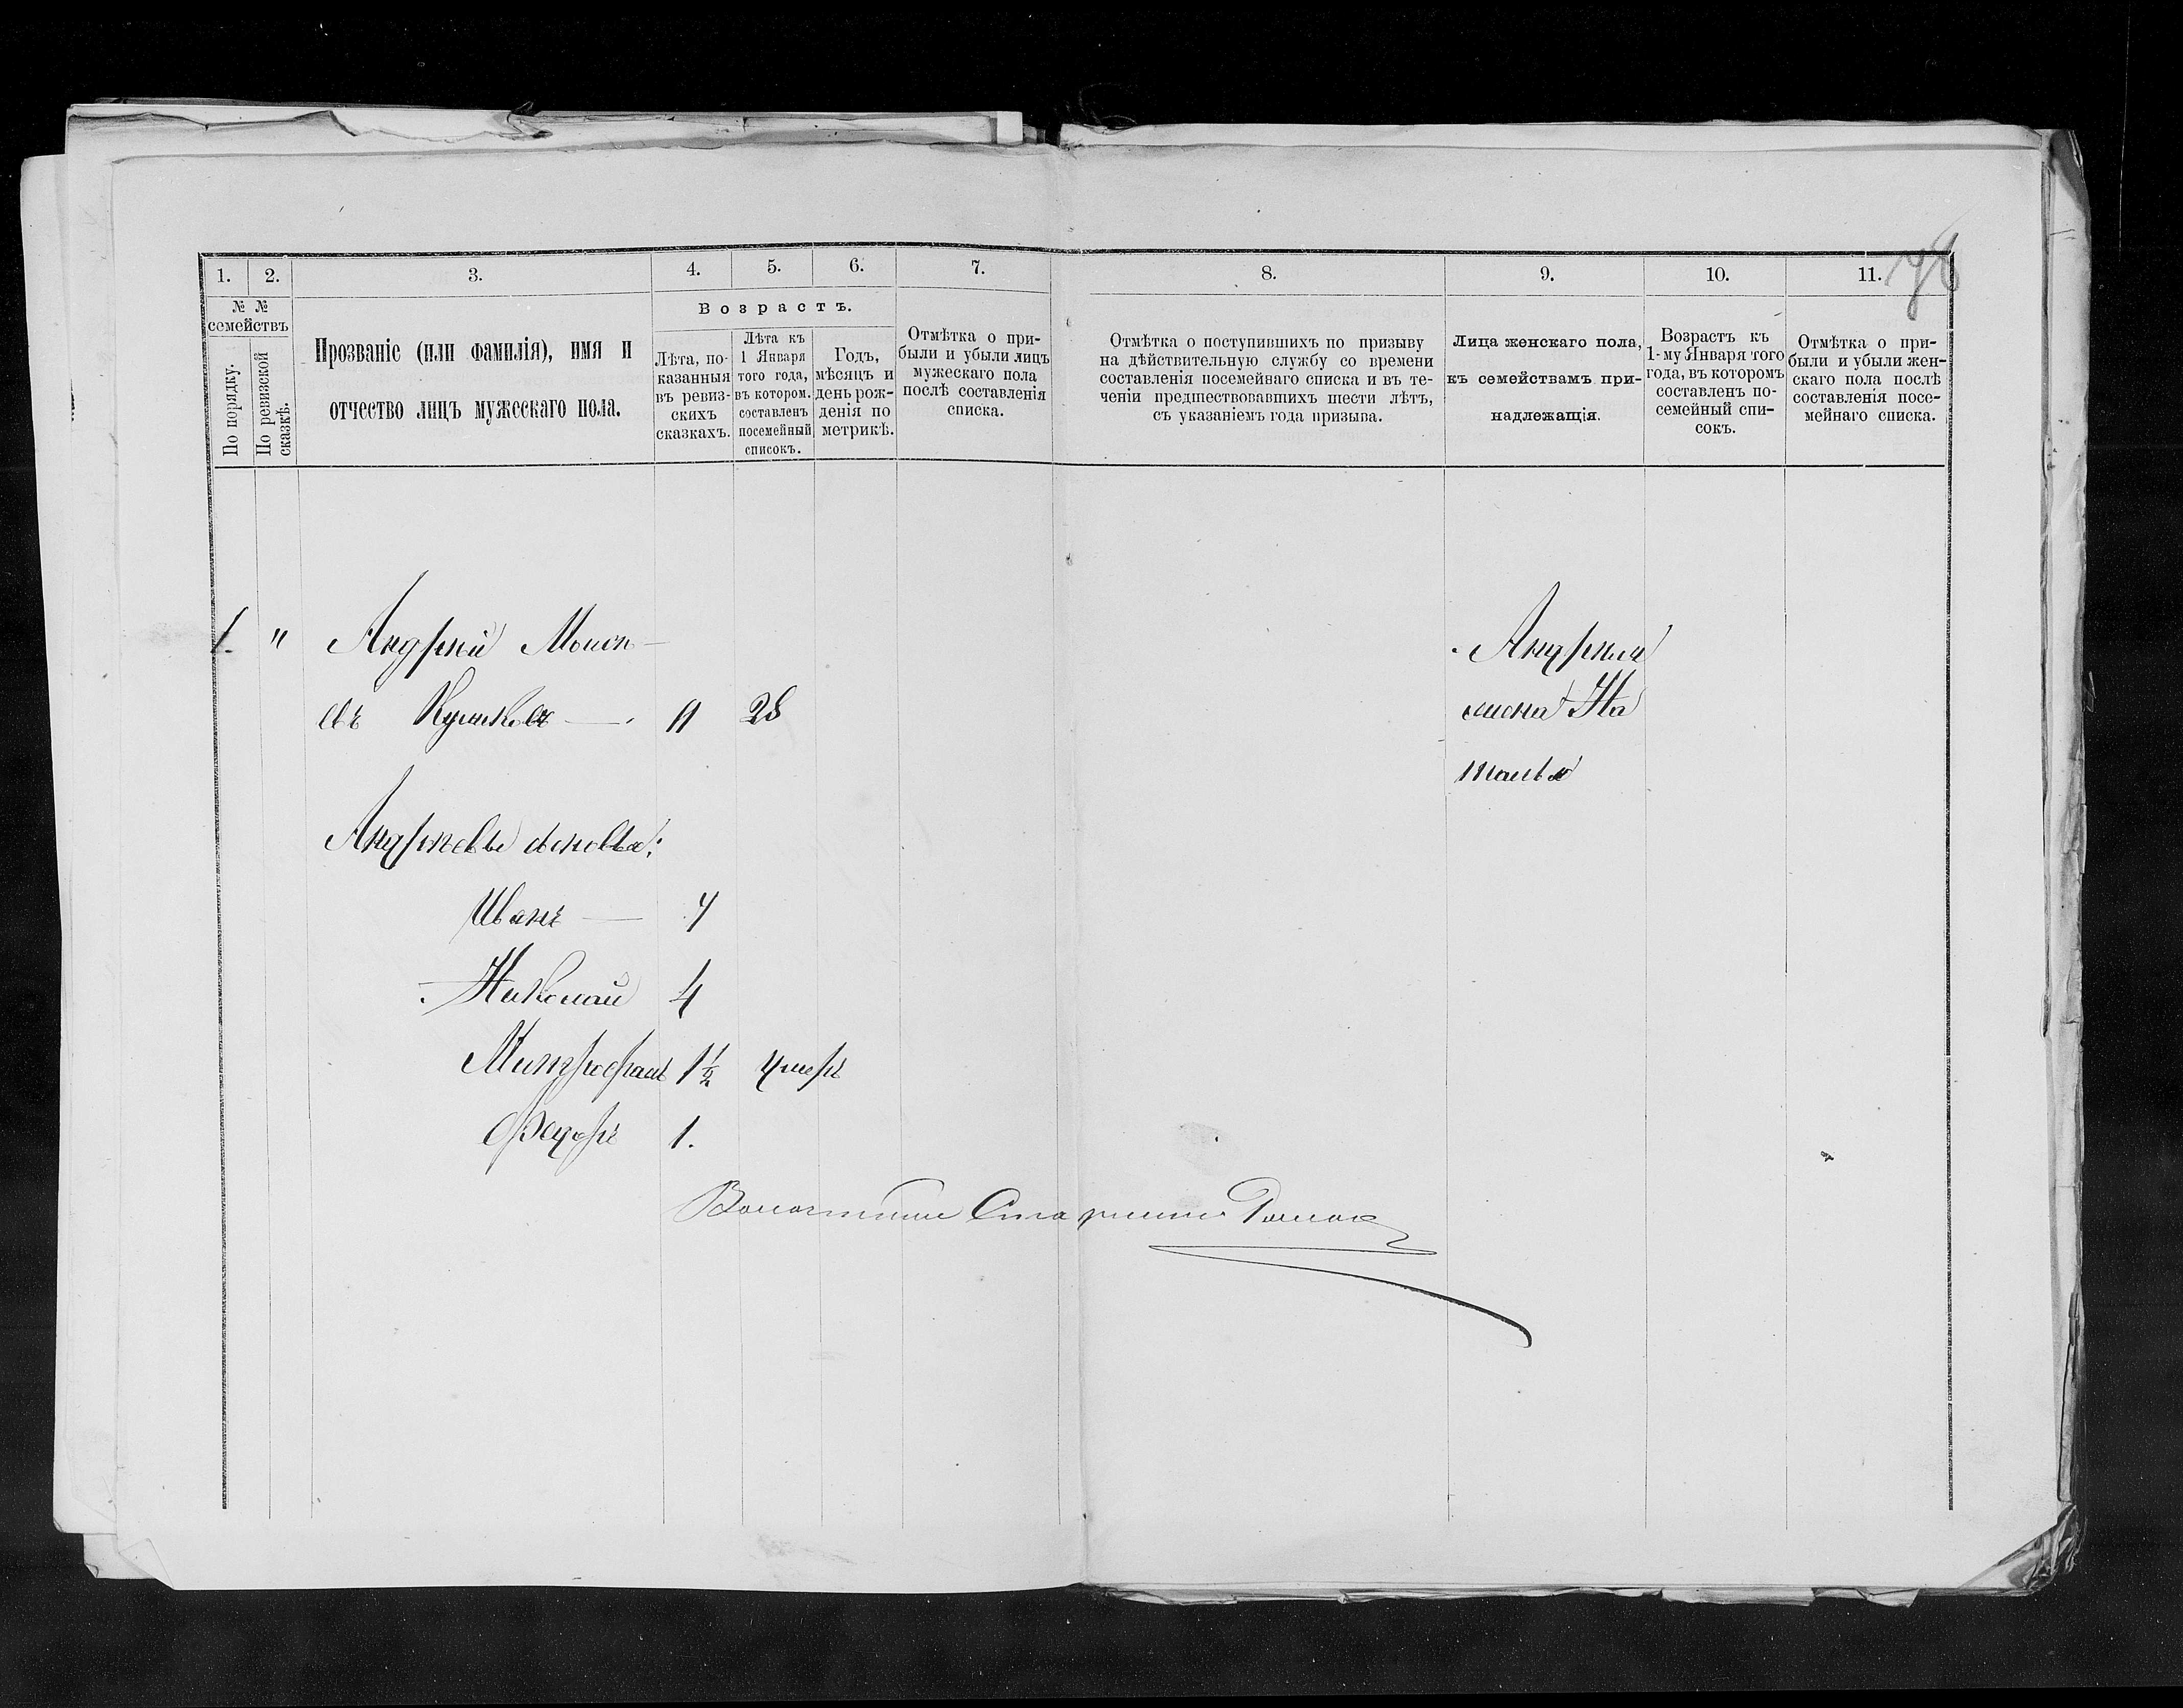 1. 2. 3. 4. 5. 6. 7. 8. 9. 10. 11.
№ № семействъ
По порядку.
По ревизской сказкѣ.
Прозваніе (или фамилія), имя и
отчество лицъ мужескаго пола.
Возрастъ.
Лѣта, по-
казанныя
въ ревиз-
скихъ
сказкахъ.
Лѣта къ
1 Января
того года,
въ котором.
составленъ
посемейный
списокъ.
Годъ,
мѣсяцъ и
день рож-
денія по
метрикѣ.
Отмѣтка о при-
были и убыли лицъ
мужескаго пола
послѣ составленія
списка.
Отмѣтка о поступившихъ по призыву
на дѣйствительную службу со времени
составленія посемейнаго списка и въ те-
ченіи предшествовавшихъ шести лѣтъ,
съ указаніемъ года призыва.
Лица женскаго пола,
къ семействамъ при-
надлежащія.
Возрастъ къ
1-му Января того
года, въ которомъ
составленъ по-
семейный спи-
сокъ.
Отмѣтка о при-
были и убыли жен-
скаго пола послѣ
составленія посе-
мейнаго списка.
1. " Андрей Моисѣ-
евъ 28
Андрея
жена На
талья
Андреевы сыновья:
Иванъ — 7
Николай 4
Митрофанъ 1½ умеръ
Федоръ 1.
Волостной Старшина